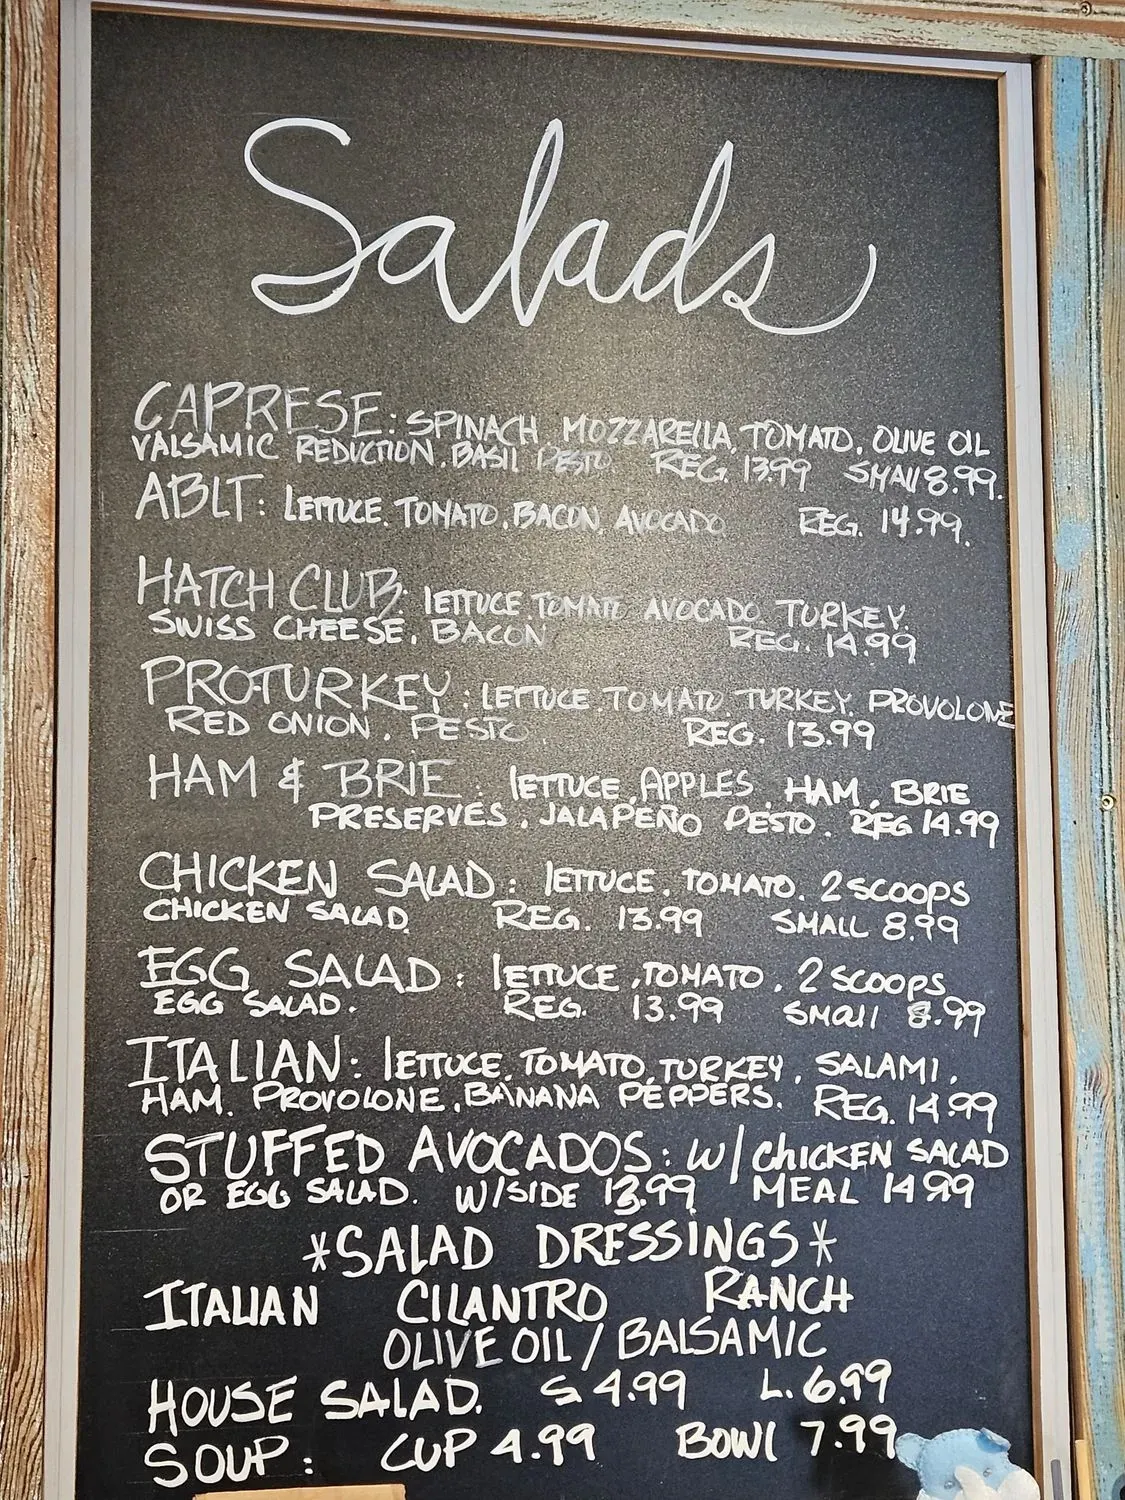 Salads
CAPRESE: SPINACH, MOZZARELLA, TOMATO, OLIVE OIL
VALSAMIC REDUCTION, BASIL PESTO. REG. 13.99 SMALL 8.99.
ABLT: LETTUCE, TOMATO, BACON, AVOCADO REG. 14.99.
HATCH CLUB: LETTUCE TOMATO AVOCADO TURKEY,
SWISS CHEESE, BACON REG. 14.99
PRO-TURKEY: LETTUCE, TOMATO TURKEY, PROVOLONE
RED ONION, PESTO REG. 13.99
HAM & BRIE: LETTUCE, APPLES, HAM, BRIE
PRESERVES, JALAPEÑO PESTO. REG 14.99
CHICKEN SALAD: LETTUCE, TOMATO, 2 SCOOPS
CHICKEN SALAD. REG. 13.99 SMALL 8.99
EGG SALAD: LETTUCE, TOMATO, 2 SCOOPS
EGG SALAD. REG. 13.99 SMALL 8.99
ITALIAN: LETTUCE, TOMATO, TURKEY, SALAMI,
HAM, PROVOLONE, BANANA PEPPERS. REG. 14.99
STUFFED AVOCADOS: W/ CHICKEN SALAD
OR EGG SALAD. W/SIDE 13.99 MEAL 14.99
*SALAD DRESSINGS*
ITALIAN CILANTRO RANCH
OLIVE OIL / BALSAMIC
HOUSE SALAD. S 4.99 L. 6.99
SOUP: CUP 4.99 BOWL 7.99